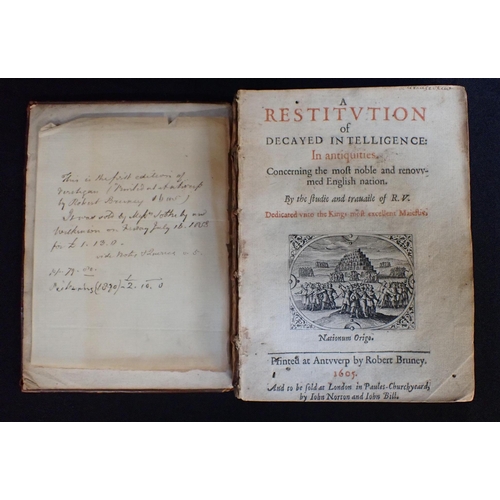 This is the first edition of
Verstegan (Printed at Antwerp
by Robert Bruney 1605)
It was sold by Messrs Sotheby
on Friday July 16.
for £1. 13. 0.
(1890) £2. 10. 0
A
RESTITVTION
of
DECAYED INTELLIGENCE:
In antiquities.
Concerning the most noble and renovv-
med English nation.
By the studie and trauaile of R. V.
Dedicated vnto the Kings most excellent Maiestie.
Nationum Origo.
Printed at Antvverp by Robert Bruney.
1605.
And to be sold at London in Paules-Churchyeard,
by Iohn Norton and Iohn Bill.